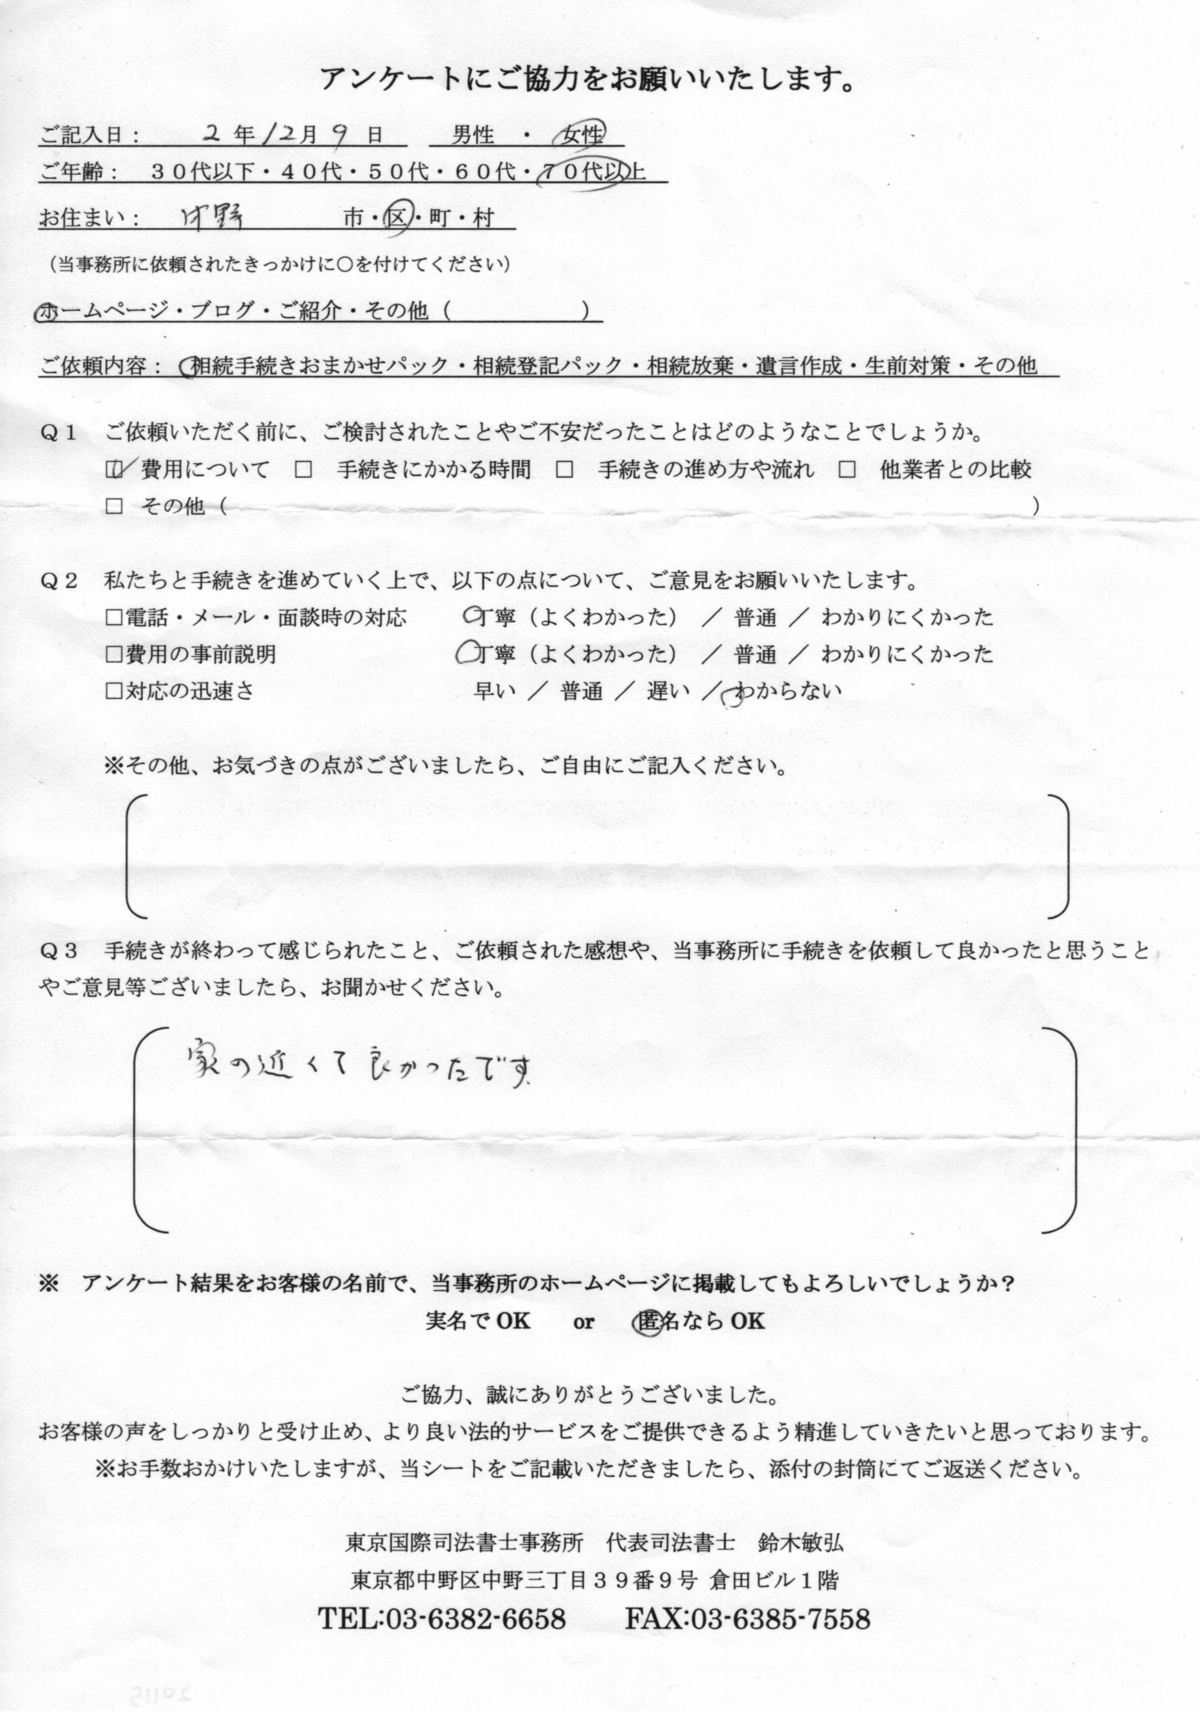 アンケートにご協力をお願いいたします。
ご記入日： 2 年 12月 9 日 男性 ・ 女性
ご年齢： ３０代以下・４０代・５０代・６０代・７０代以上
お住まい： 中野 市・区・町・村
（当事務所に依頼されたきっかけに〇を付けてください）
ホームページ・ブログ・ご紹介・その他（ ）
ご依頼内容： 相続手続きおまかせパック・相続登記パック・相続放棄・遺言作成・生前対策・その他
Ｑ１ ご依頼いただく前に、ご検討されたことやご不安だったことはどのようなことでしょうか。
☑ 費用について □ 手続きにかかる時間 □ 手続きの進め方や流れ □ 他業者との比較
□ その他（ ）
Ｑ２ 私たちと手続きを進めていく上で、以下の点について、ご意見をお願いいたします。
□電話・メール・面談時の対応 丁寧（よくわかった） ／ 普通 ／ わかりにくかった
□費用の事前説明 丁寧（よくわかった） ／ 普通 ／ わかりにくかった
□対応の迅速さ 早い ／ 普通 ／ 遅い ／ わからない
※その他、お気づきの点がございましたら、ご自由にご記入ください。
Ｑ３ 手続きが終わって感じられたこと、ご依頼された感想や、当事務所に手続きを依頼して良かったと思うこと
やご意見等ございましたら、お聞かせください。
家の近くて良かったです
※ アンケート結果をお客様の名前で、当事務所のホームページに掲載してもよろしいでしょうか？
実名で OK or 匿名なら OK
ご協力、誠にありがとうございました。
お客様の声をしっかりと受け止め、より良い法的サービスをご提供できるよう精進していきたいと思っております。
※お手数おかけいたしますが、当シートをご記載いただきましたら、添付の封筒にてご返送ください。
東京国際司法書士事務所 代表司法書士 鈴木敏弘
東京都中野区中野三丁目３９番９号 倉田ビル１階
TEL:03-6382-6658 FAX:03-6385-7558